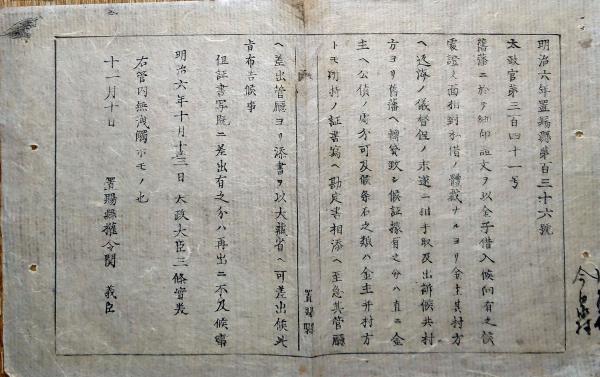 明治六年置賜縣第百三十六號
太政官第三百四十一号
舊藩ニ於テ納印証文ヲ以金子借入候向有之候
處證文面相対私借ノ體裁ナルヨリ金主其村方
ヘ返済ノ儀督促ノ末遂ニ相手取及出訴候共村
方ヨリ舊藩ヘ轉貸致シ候証據有之分ハ直ニ金
主ヘ公債ノ処分可及候条右之類ハ金主并村方
トモ所持ノ証書寫ヘ勘定書相添ヘ至急其管廳
置賜縣
ヘ差出管廳ヨリ添書ヲ以大藏省ヘ可差出候此
旨布告候事
但証書写既ニ差出有之分ハ再出ニ不及候事
明治六年十月十三日 太政大臣三條實美
右管内無洩觸示モノ也
十一月十日
置賜縣權令関 義臣